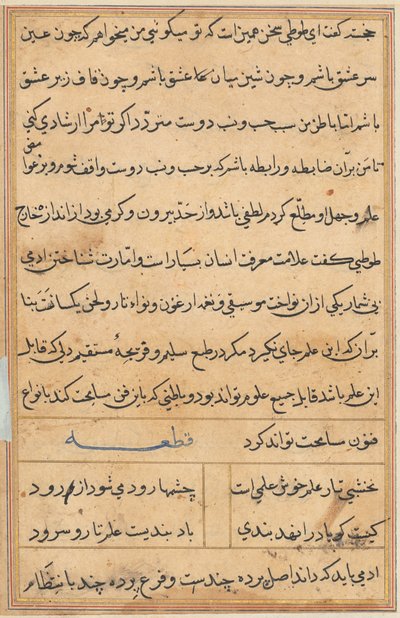 خجسته گفت ای طوطی سخن همین است که تو میگوئی من میخواهم که چون عین
سر عشق باشم و چون شین میان عشق باشم و چون قاف زیر عشق
باشم اما باطن من سبب حب و نب دوست متردد اگر تو مرا ارشادی کنی
تا من بر آن ضابطه و رابطه باشم که بر حب و نب دوست واقف شوم و بر
علم و جهل او مطلع کردم لطفی باشد و از حد بیرون و کرمی بود از اندازه خارج
طوطی گفت علامت معرفت انسان بسیار است و امارت شناختن آدمی
بی شمار یکی از آن نواخت موسیقی و نغمه ارغنون و نواء تار و لحن یکسانست بنا
بر آن که این علم جای نکیرد مکر در طبع سلیم و قریحهٔ مستقیم دلی که قابل
این علم باشد قابل جمیع علوم تواند بود و باطنی که باین فن سامحت کند بانواع
فنون سامحت تواند کرد
قطعه
نخشبی تار علم خوش علمی است
چشمها رود می شود از رود
کیست کو باد را نهد بندی
باد بندست علم تار و سرود
ادمی باید که داند اصل پرده چندست و فرع پرده چند با انتظام